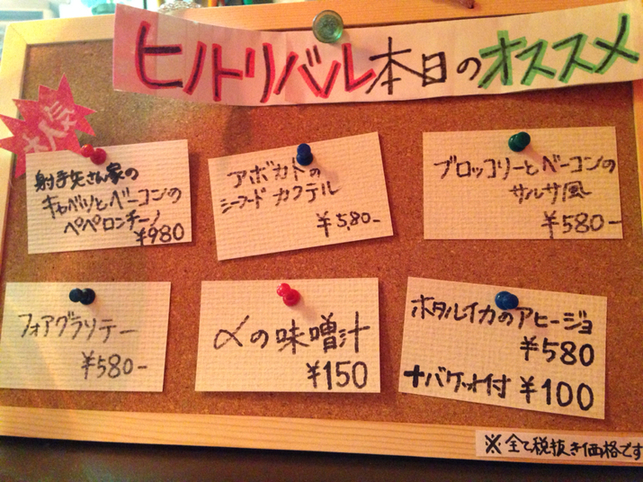 ヒノトリバル本日のオススメ
大人気
射手矢さん家の
キャベツとベーコンの
ペペロンチーノ
¥980
アボカドの
シーフードカクテル
¥5,80-
ブロッコリーとベーコンの
サルサ風
¥580-
フォアグラソテー
¥580-
〆の味噌汁
¥150
ホタルイカのアヒージョ
¥580
+バゲット付 ¥100
※全て税抜き価格です